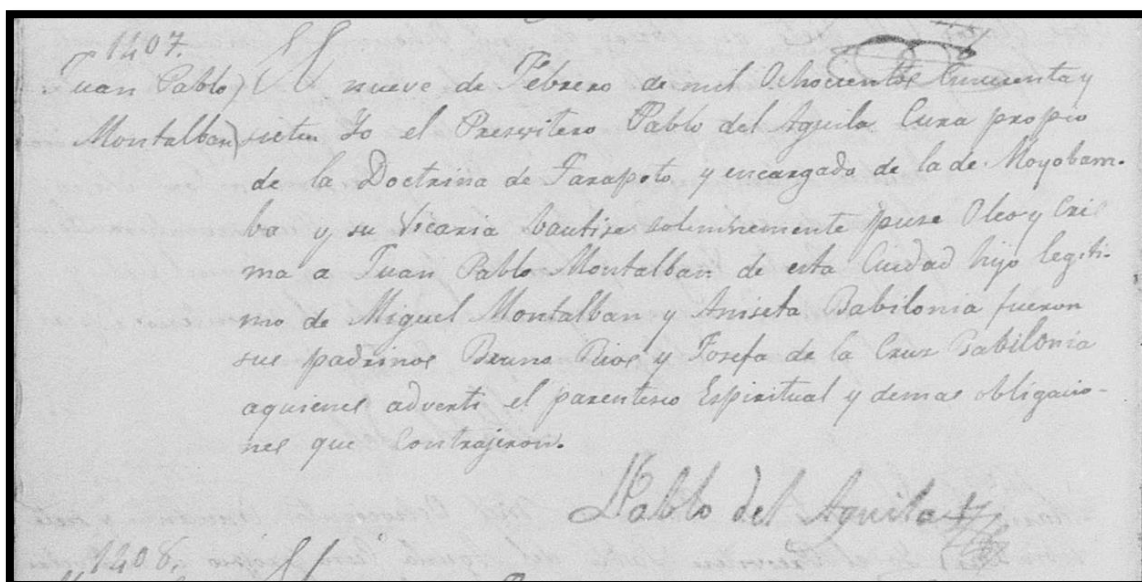 1407.
Juan Pablo) A nueve de Febrero de mil Ochocientos Cincuenta y
Montalban) siete Yo el Preswitero Pablo del Aguila Cura propio
de la Doctrina de Tarapoto y encargado de la de Moyobam-
ba y su Vicaria bautise solemnemente puse Oleo y Cris
ma a Juan Pablo Montalban de esta Cuidad hijo legiti-
mo de Miguel Montalban y Aniseta Babilonia fueron
sus padrinos Bruno Rios y Josefa de la Cruz Babilonia
aquienes adverti el parentesco Espiritual y demas obligacio-
nes que Contrajeron.
Pablo del Aguila
1408.